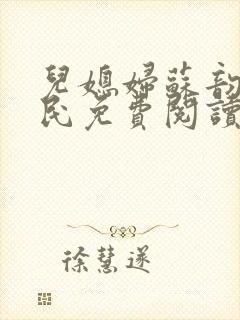 兒媳婦蘇韵
民免費閱讀
徐慧遂